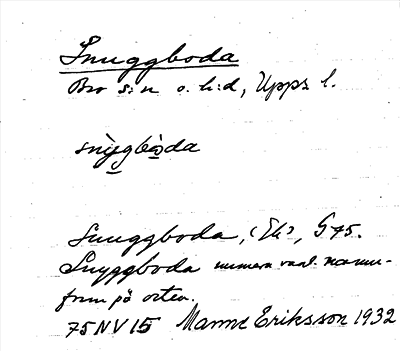 Snuggboda
Bro s:n o. h:d, Upps l.
sny̲gbo̲da
Snuggboda, (Ek), G75.
Snyggboda numera vanl. namn-
form på orten.
75NV15 Manne Eriksson 1932